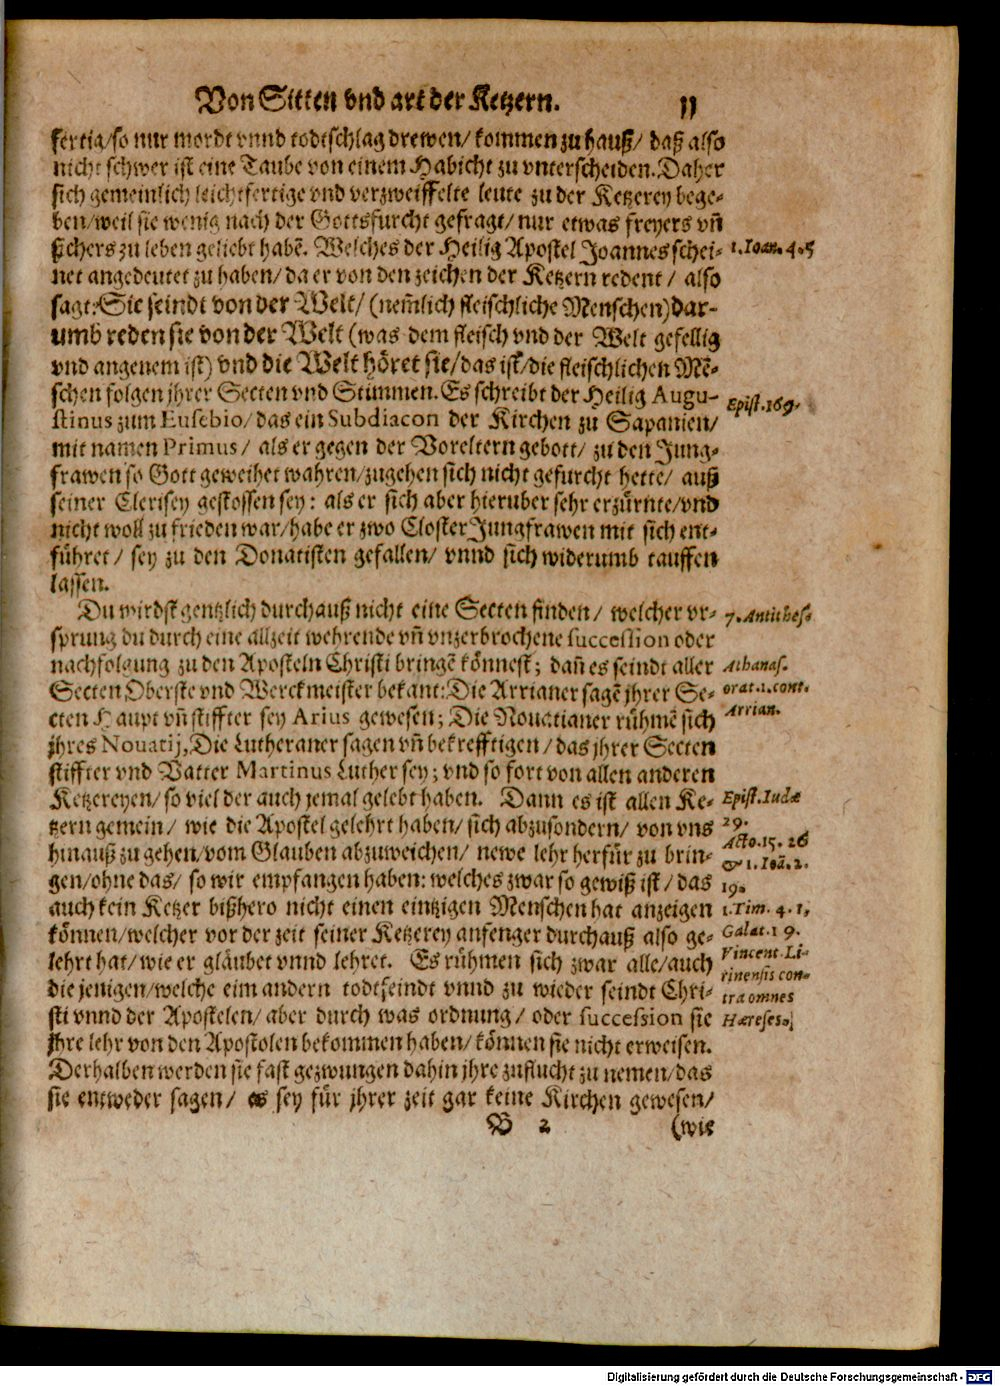 Von Sitten vnd art der Ketzern. 11
fertig/so nur mordt vnnd todtschlag drewen/ kommen zu hauß/ daß also
nicht schwer ist eine Taube von einem Habicht zu vnterscheiden. Daher
sich gemeinlich leichtfertige vnd verzweiffelte leute zu der Ketzerey bege-
ben/weil sie wenig nach der Gottsfurcht gefragt/ nur etwas freyers vñ
sichers zu leben geliebt habẽ. Welches der Heilig Apostel Joannes schei- 1. Ioan. 4. 5
net angedeutet zu haben/da er von den zeichen der Ketzern redent/ also
sagt: Sie seindt von der Welt/ (nem̃lich fleischliche Menschen) dar-
umb reden sie von der Welt (was dem fleisch vnd der Welt gefellig
vnd angenem ist) vnd die Welt höret sie/das ist/die fleischlichen Mẽ-
schen folgen jhrer Secten vnd Stimmen. Es schreibt der Heilig Augu- Epist. 169.
stinus zum Eusebio/das ein Subdiacon der Kirchen zu Sapanien/
mit namen Primus/ als er gegen der Voreltern gebott/ zu den Jung-
frawen so Gott geweihet wahren/zugehen sich nicht gefurcht hette/ auß
seiner Clerisey gestossen sey: als er sich aber hieruber sehr erzürnte/vnd
nicht woll zu frieden war/habe er zwo Closter Jungfrawen mit sich ent-
führet/ sey zu den Donatisten gefallen/ vnnd sich widerumb tauffen
lassen.
Du wirdst gentzlich durchauß nicht eine Secten finden/ welcher vr- 7. Antithes.
sprung du durch eine allzeit wehrende vñ vnzerbrochene succession oder
nachfolgung zu den Aposteln Christi bringẽ könnest; dañ es seindt aller Athanas.
Secten Oberste vnd Werckmeister bekant: Die Arrianer sagẽ jhrer Se- orat. 1. cont.
cten Haupt vñ stiffter sey Arius gewesen; Die Nouatianer rühmẽ sich Arrian.
jhres Nouatij, Die Lutheraner sagen vñ bekrefftigen/das jhrer Secten
stiffter vnd Vatter Martinus Luther sey; vnd so fort von allen anderen
Ketzereyen/so viel der auch jemal gelebt haben. Dann es ist allen Ke- Epist. Iudæ
tzern gemein/ wie die Apostel gelehrt haben/sich abzusondern/ von vns 29.
hinauß zu gehen/vom Glauben abzuweichen/ newe lehr herfür zu brin- Acto. 15. 26
& 1. Ioã. 2.
gen/ohne das/ so wir empfangen haben: welches zwar so gewiß ist/das 19.
auch kein Ketzer bißhero nicht einen eintzigen Menschen hat anzeigen 1. Tim. 4. 1,
können/welcher vor der zeit seiner Ketzerey anfenger durchauß also ge- Galat. 1 9.
lehrt hat/wie er gläubet vnnd lehret. Es rühmen sich zwar alle/auch Vincent. Li-
die jenigen/welche eim andern todtfeindt vnnd zu wieder seindt Chri- rinensis con-
sti vnnd der Apostelen/aber durch was ordnung/ oder succession sie tra omnes
Hæreses.
jhre lehr von den Apostolen bekommen haben/können sie nicht erweisen.
Derhalben werden sie fast gezwungen dahin jhre zuflucht zu nemen/das
sie entweder sagen/ es sey für jhrer zeit gar keine Kirchen gewesen/
B 2 (wie
Digitalisierung gefördert durch die Deutsche Forschungsgemeinschaft - DFG